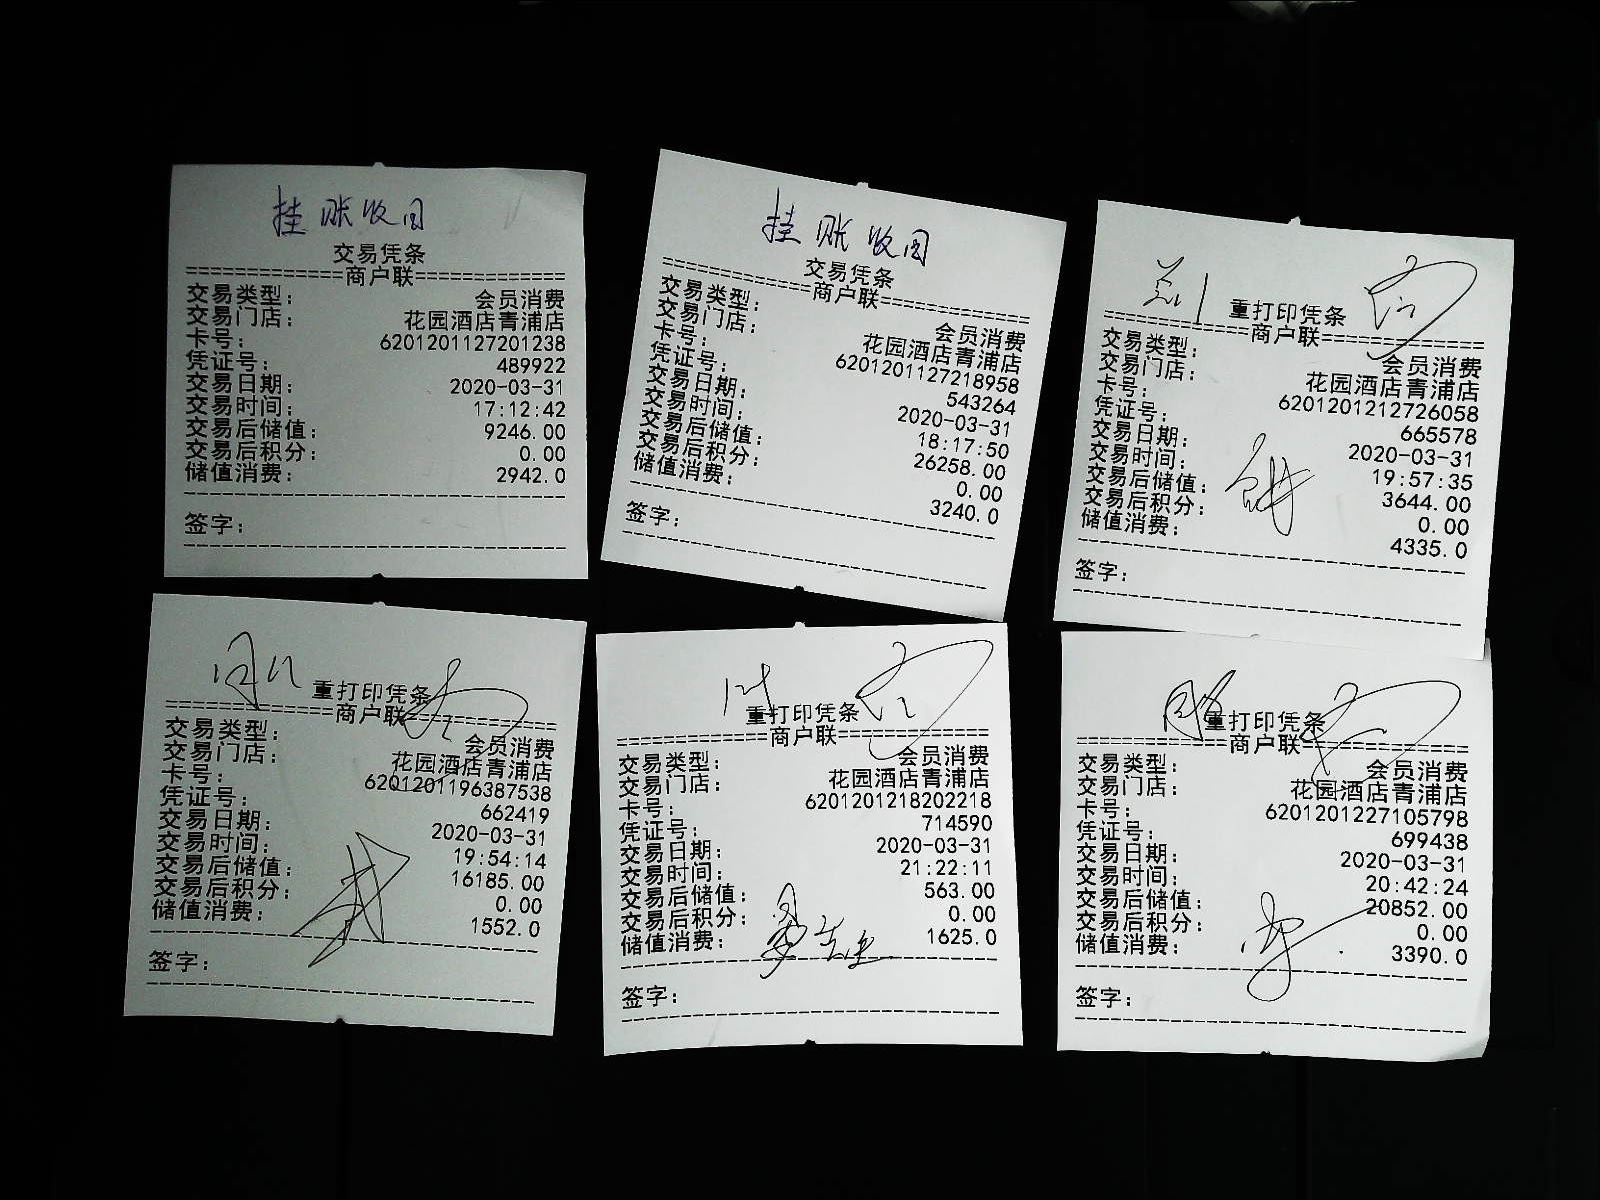 挂账收回
交易凭条
==========商户联==========
交易类型: 会员消费
交易门店: 花园酒店青浦店
卡号: 6201201127201238
凭证号: 489922
交易日期: 2020-03-31
交易时间: 17:12:42
交易后储值: 9246.00
交易后积分: 0.00
储值消费: 2942.0
签字:
挂账收回
交易凭条
==========商户联==========
交易类型: 会员消费
交易门店: 花园酒店青浦店
卡号: 6201201127218958
凭证号: 543264
交易日期: 2020-03-31
交易时间: 18:17:50
交易后储值: 26258.00
交易后积分: 0.00
储值消费: 3240.0
签字:
重打印凭条
==========商户联==========
交易类型: 会员消费
交易门店: 花园酒店青浦店
卡号: 6201201212726058
凭证号: 665578
交易日期: 2020-03-31
交易时间: 19:57:35
交易后储值: 3644.00
交易后积分: 0.00
储值消费: 4335.0
签字:
重打印凭条
==========商户联==========
交易类型: 会员消费
交易门店: 花园酒店青浦店
卡号: 6201201196387538
凭证号: 662419
交易日期: 2020-03-31
交易时间: 19:54:14
交易后储值: 16185.00
交易后积分: 0.00
储值消费: 1552.0
签字:
重打印凭条
==========商户联==========
交易类型: 会员消费
交易门店: 花园酒店青浦店
卡号: 6201201218202218
凭证号: 714590
交易日期: 2020-03-31
交易时间: 21:22:11
交易后储值: 563.00
交易后积分: 0.00
储值消费: 1625.0
签字:
重打印凭条
==========商户联==========
交易类型: 会员消费
交易门店: 花园酒店青浦店
卡号: 6201201227105798
凭证号: 699438
交易日期: 2020-03-31
交易时间: 20:42:24
交易后储值: 20852.00
交易后积分: 0.00
储值消费: 3390.0
签字: